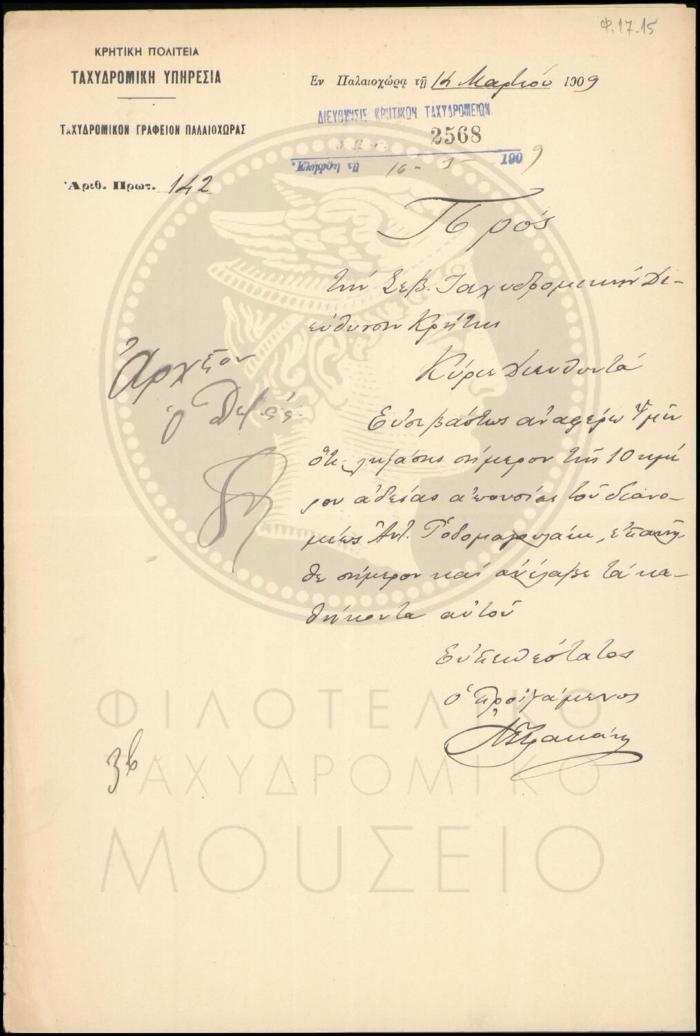 Φ.17.15
ΚΡΗΤΙΚΗ ΠΟΛΙΤΕΙΑ
ΤΑΧΥΔΡΟΜΙΚΗ ΥΠΗΡΕΣΙΑ
ΤΑΧΥΔΡΟΜΙΚΟΝ ΓΡΑΦΕΙΟΝ ΠΑΛΑΙΟΧΩΡΑΣ
Ἀριθ. Πρωτ. 142
Εν Παλαιοχώρᾳ τῇ 14 Μαρτίου 1909
ΔΙΕΥΘΥΝΣΙΣ ΚΡΗΤΙΚΩΝ ΤΑΧΥΔΡΟΜΕΙΩΝ
2568
16 - 3 - 1909
Πρός
τὴν Σεβ. Ταχυδρομικὴν Δι-
εύθυνσιν Κρήτης
Κύριε Διευθυντά
Εὐσεβάστως ἀναφέρω Ὑμῖν
ὅτι ληξάσης σήμερον τῆς 10ημέ
ρου ἀδείας ἀπουσίας τοῦ διανο-
μέως Ἀντ. Ῥοδομαγουλάκη, ἐπανῆλ
θε σήμερον καὶ ἀνέλαβε τὰ κα-
θήκοντα αὐτοῦ
Εὐπειθέστατος
ὁ προϊστάμενος
Ἀρχεῖον
36
ΦΙΛΟΤΕΛΙΚΟ
ΤΑΧΥΔΡΟΜΙΚΟ
ΜΟΥΣΕΙΟ